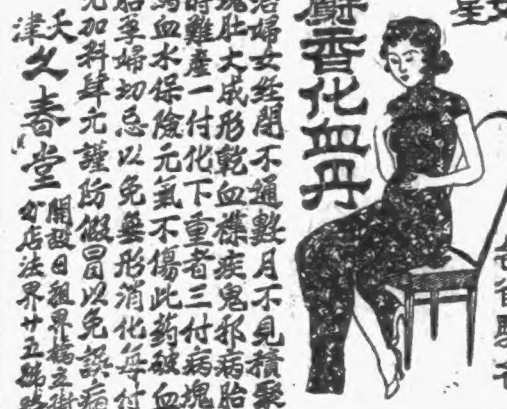 麝香化血丹
治婦女经閉不通數月不見積聚
塊肚大成形乾血襍疾鬼邪病胎
時難產一付化下重者三付病塊
血水保險元氣不傷此葯破血
胎孕婦切忌以免無形消化每付
元加料肆元謹防假冒以免誤病
天津久春堂
開設日租界橋立街
分店法界廿五號路